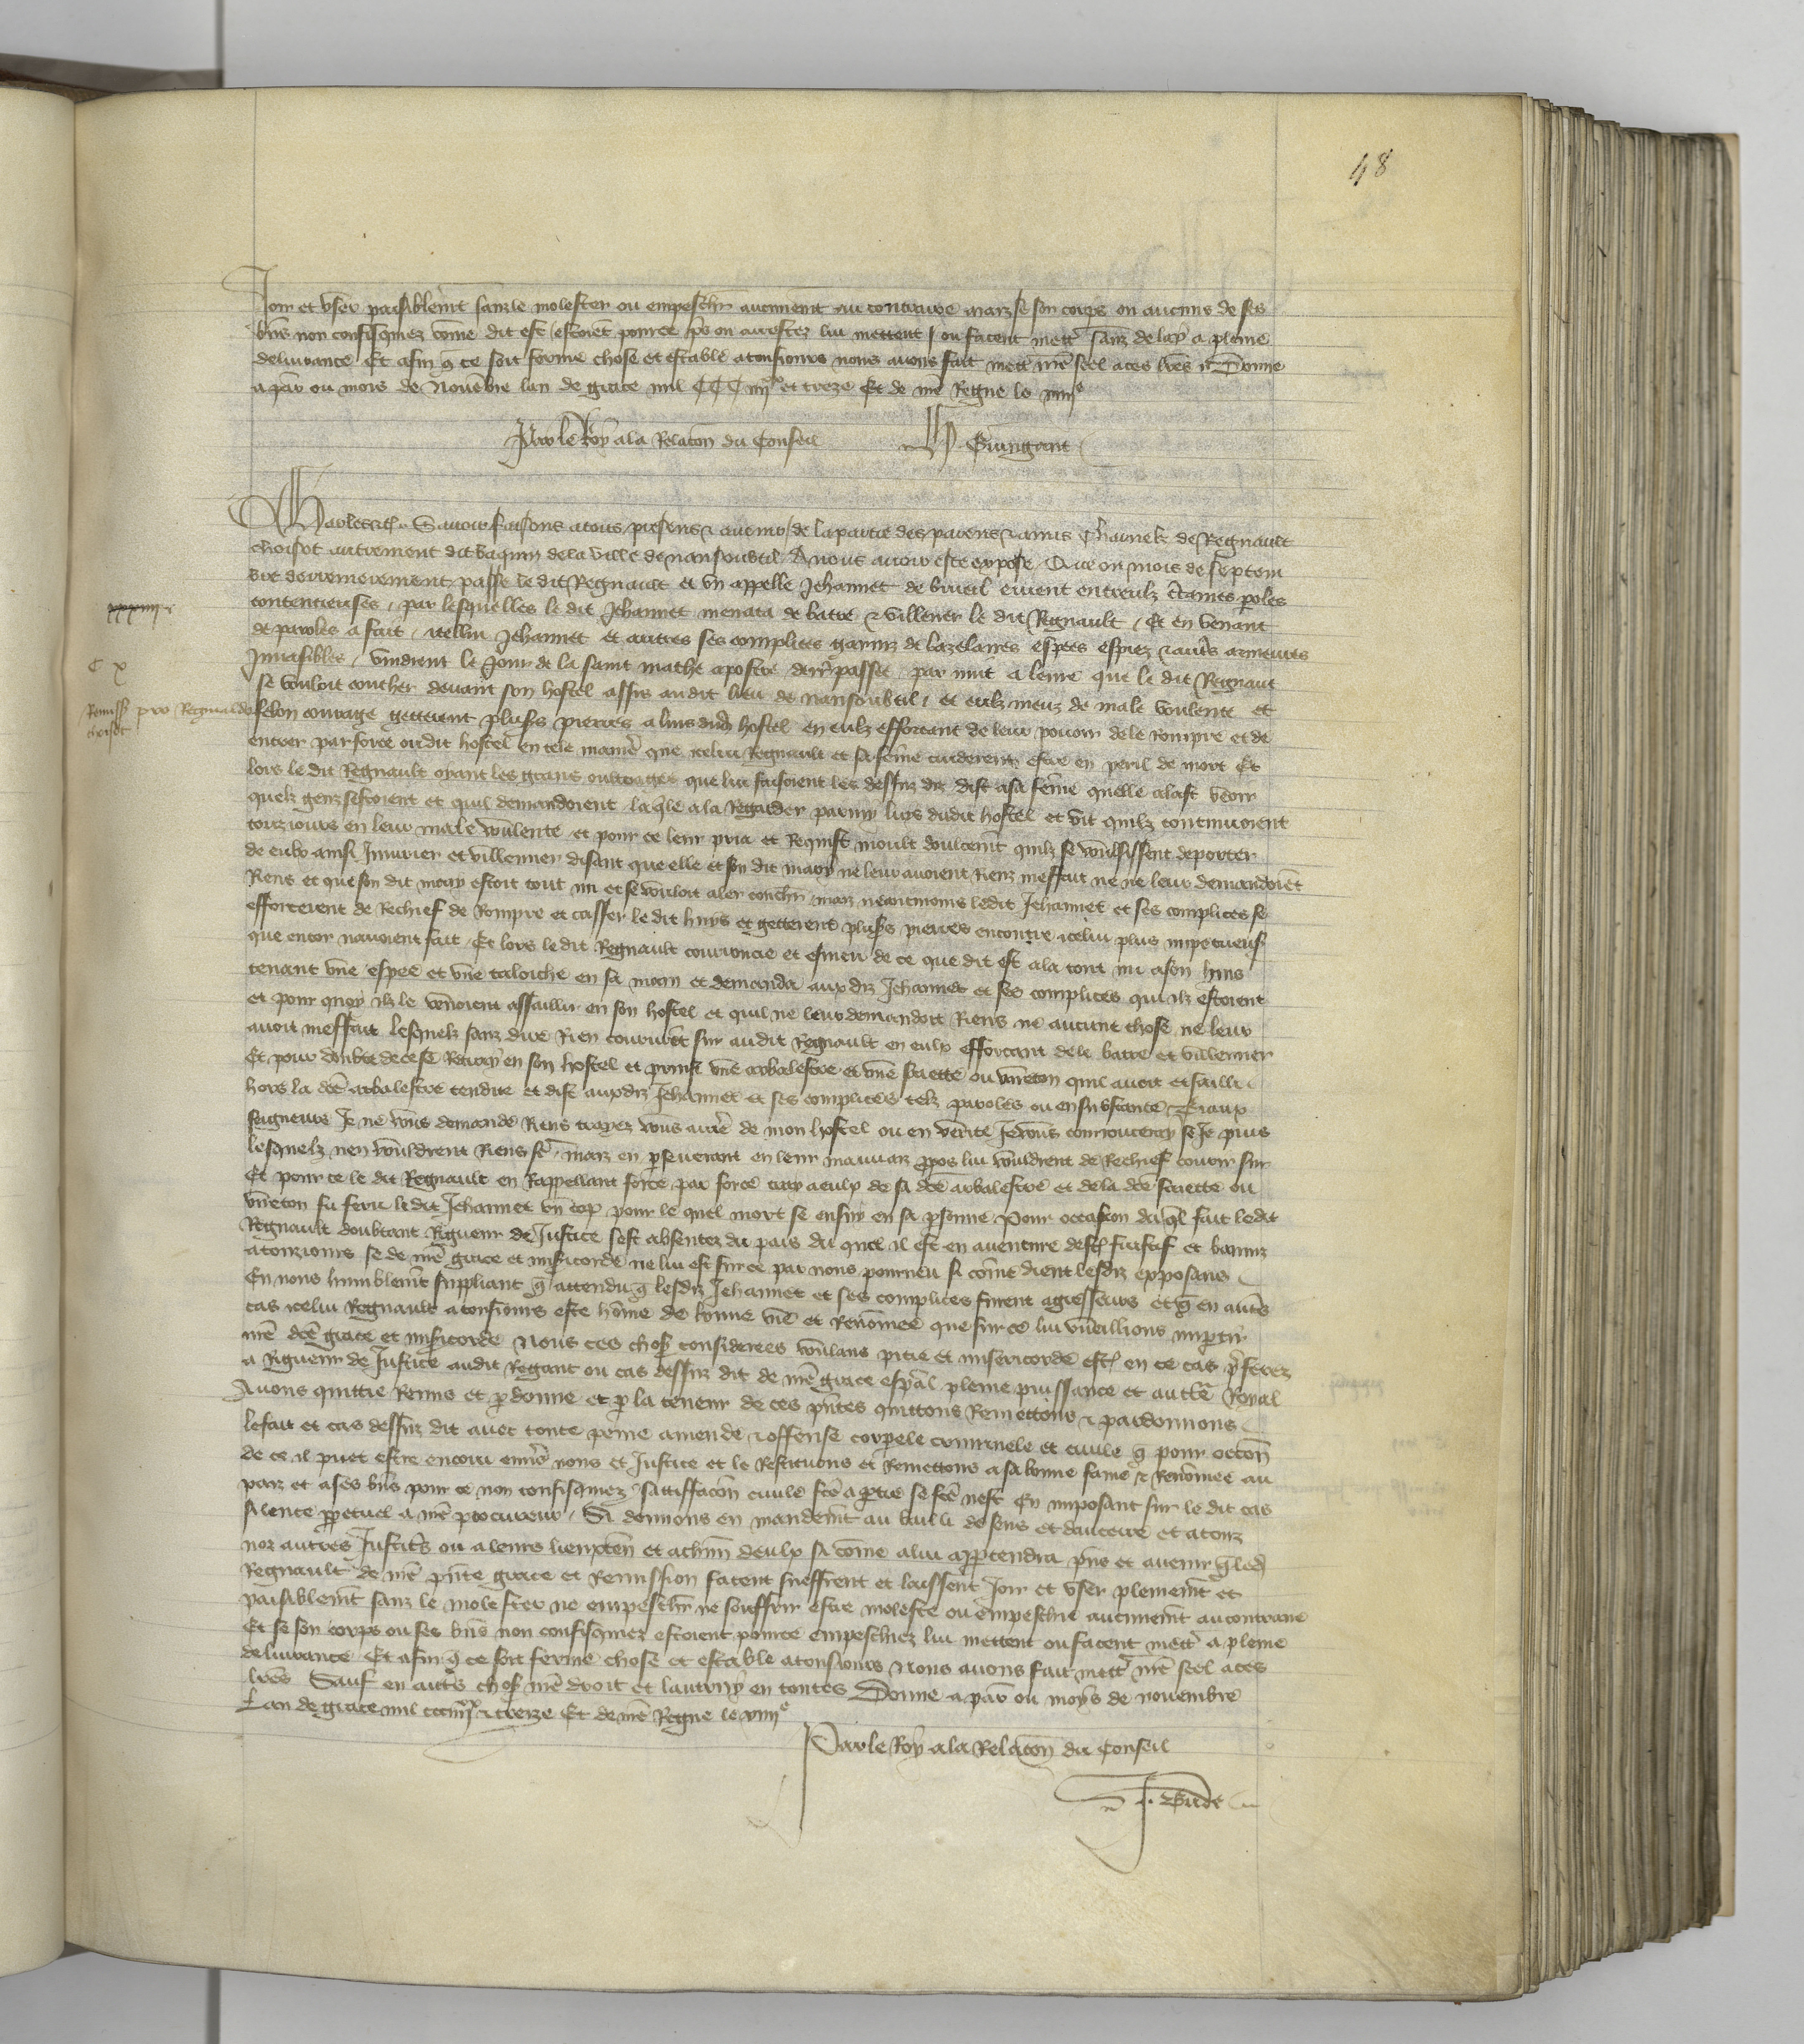 48
Joir et user paisiblemt sanz le molester ou empeschr aucunemt au contraire maiz se son corps ou aucuns de ses
biens non confisquiez come dit est estoient pource pris ou arrestez lui mettent ou facent mettr sanz delay a pleine
delivrance Et afin q ce soit ferme chose et estable a tousiours nous avons fait mettr nre seel a ces lres Donne
a par ou mois de Novebre lan de grace mil CCC iiiixx et treze Et de nre Regne le xiiiie
Par le Roy a la Relacon du Conseil Guingant
Charles etc Savoir faisons a tous presens & avenir de la partie des parens & amis charnelz de Regnault
choisot autrement dit baquin de la ville de nansoubtil A nous avoir este expose Que ou mois de Septem
bre derrenierement passe le dit Regnault et un appelle Jehannet de brueil eurent entreulz ctaines poles
contencieuses par lesquelles le dit Jehannet menaca de batre & villener le dit Regnault Et en venant
xxxiiii
de paroles a fait icellui Jehannet et autres ses complices garniz de bazelaires espees espiez & autres armeures
Invasibles vindrent le Jour de la saint mathe apostre derr passee par nuit a leure que le dit Regnaut
C X
se vouloit coucher devant son hostel assis audit lieu de nansoubtil et eulz meuz de male voulente et
Remiss pro Regnaldo choisot
felon courage getterent plusrs pierres a luis dud hostel en eulz efforcant de leur pouoir de le rompre et de
entrer par force oudit hostel en tele manie que icelui Regnault et sa feme cuiderent estre en peril de mort Et
lors le dit Regnault oyant les grans oultrages que lui faisoient les dessuz diz dist a sa feme quelle alast veoir
quelz genz sestoient et quil demandoient laqle ala Regarder parmy luis dudit hostel et vit quilz continuoient
touziours en leur male voulente et pour ce leur pria et Requist moult doulcemt quilz se voulsissent deporter
de eulx ainsi Injurier et villenner disant que elle et son dit mary ne leur avoient Rienz meffait ne ne leur demandoiet
Riens et que son dit mary estoit tout nu et se vouloit aler couchr maiz neantmoins ledit Jehannet et ses complices se
efforcerent de Rechief de Rompre et casser le dit huis et getterent plusrs pierres encontre icelui plus impetueusemt
que encor navoient fait Et lors le dit Regnault courroucie et esmeu de ce que dit est ala tout nu a son huis
tenant une espee et une taloiche en sa main et demanda aux diz Jehannet et ses complices qui ilz estoient
et pour quoy ilz le venoient assaillir en son hostel et quil ne leur demandoit Riens ne aucune chose ne leur
avoit meffait lesquelz sanz dire Rien coururet sur audit Regnault en eulx efforcant de le batre et villenner
Et pour doubte de ce se Retray en son hostel et prinst une arbalestre et une saiette ou vireton quil avoit et sailli
hors la dce arbalestre tendue et dist auxdiz Jehannet et ses complices telz paroles ou en substance Beaux
seigneurs Je ne vous demande Riens traiez vous arre de mon hostel ou en verite Je vous courrouceray se Je puis
lesquelz nen vouldrent Riens fe maiz en pseverant en leur mauvaiz ppos lui vouldrent de Rechief courir sur
Et pour ce le dit Regnault en Rappellant force par force tray a eulx de sa dce arbalestre et de la dce saiette ou
vireton fu feru le dit Jehannet un cop pour le quel mort se ensuy en sa psonne Pour occasion du ql fait ledit
Regnault doubtant Rigueur de Justice sest absentez du pais du quel il est en aventure destre fuitif et banniz
a touziours se de nre grace et misericorde ne lui est sur ce par nous pourveu si comt dient lesdiz exposans
En nous humblemt suppliant q attendu q lesdiz Jehannet et ses complices furent agresseurs et q en autres
cas icelui Regnault a tousiours este home de bonne vie et Renomee que sur ce lui vueillions impartir
nre dce grace et misericorde Nous ces choses considerees voulans pitie et misericorde estre en ce cas pferez
a Rigueur de Justice audit Regnaut ou cas dessuz dit de nre grace espal pleine puissance et auctte Royal
Avons quittie Remis et pdonne et p la teneur de ces pntes quittons Remettons & pardonnons
le fait et cas dessuz dit avec toute peine amende & offense corporele criminele et civile q pour occon
de ce il puet estre encouru envers nous et Justice et le Restituons et Remettons a sa bonne fame & Renomee au
paiz et a ses biens pour ce non confisquiez satiffacon civile fce a ptie se fce nest En imposant sur le dit cas
silence ppetuel a nre procureur Si donnons en mandemt au bailli de sens et daucerre et a touz
noz autres Justicrs ou a leurs lieuxten et a chun deulx si come a lui apptendra pns et avenir q led
Regnault de nre pnte grace et Remission facent sueffrent et laissent Joir et user plenemt et
paisiblemt sanz le molester ne empeschr ne souffrir estre moleste ou empeschie aucunemt au contraire
Et se son corps ou ses biens non confisquiez estoient pource empeschiez lui mettent ou facent mettr a pleine
delivrance Et afin q ce soit ferme chose et estable a tousiours Nous avons fait mettr nre seel a ces
lres Sauf en autres choses nre droit et lautruy en toutes Donne a par ou moys de novembre
Lan de grace mil ccciiiixx & treize Et de nre Regne le xiiiie
Par le Roy a la Relacon du Conseil
J. Bude